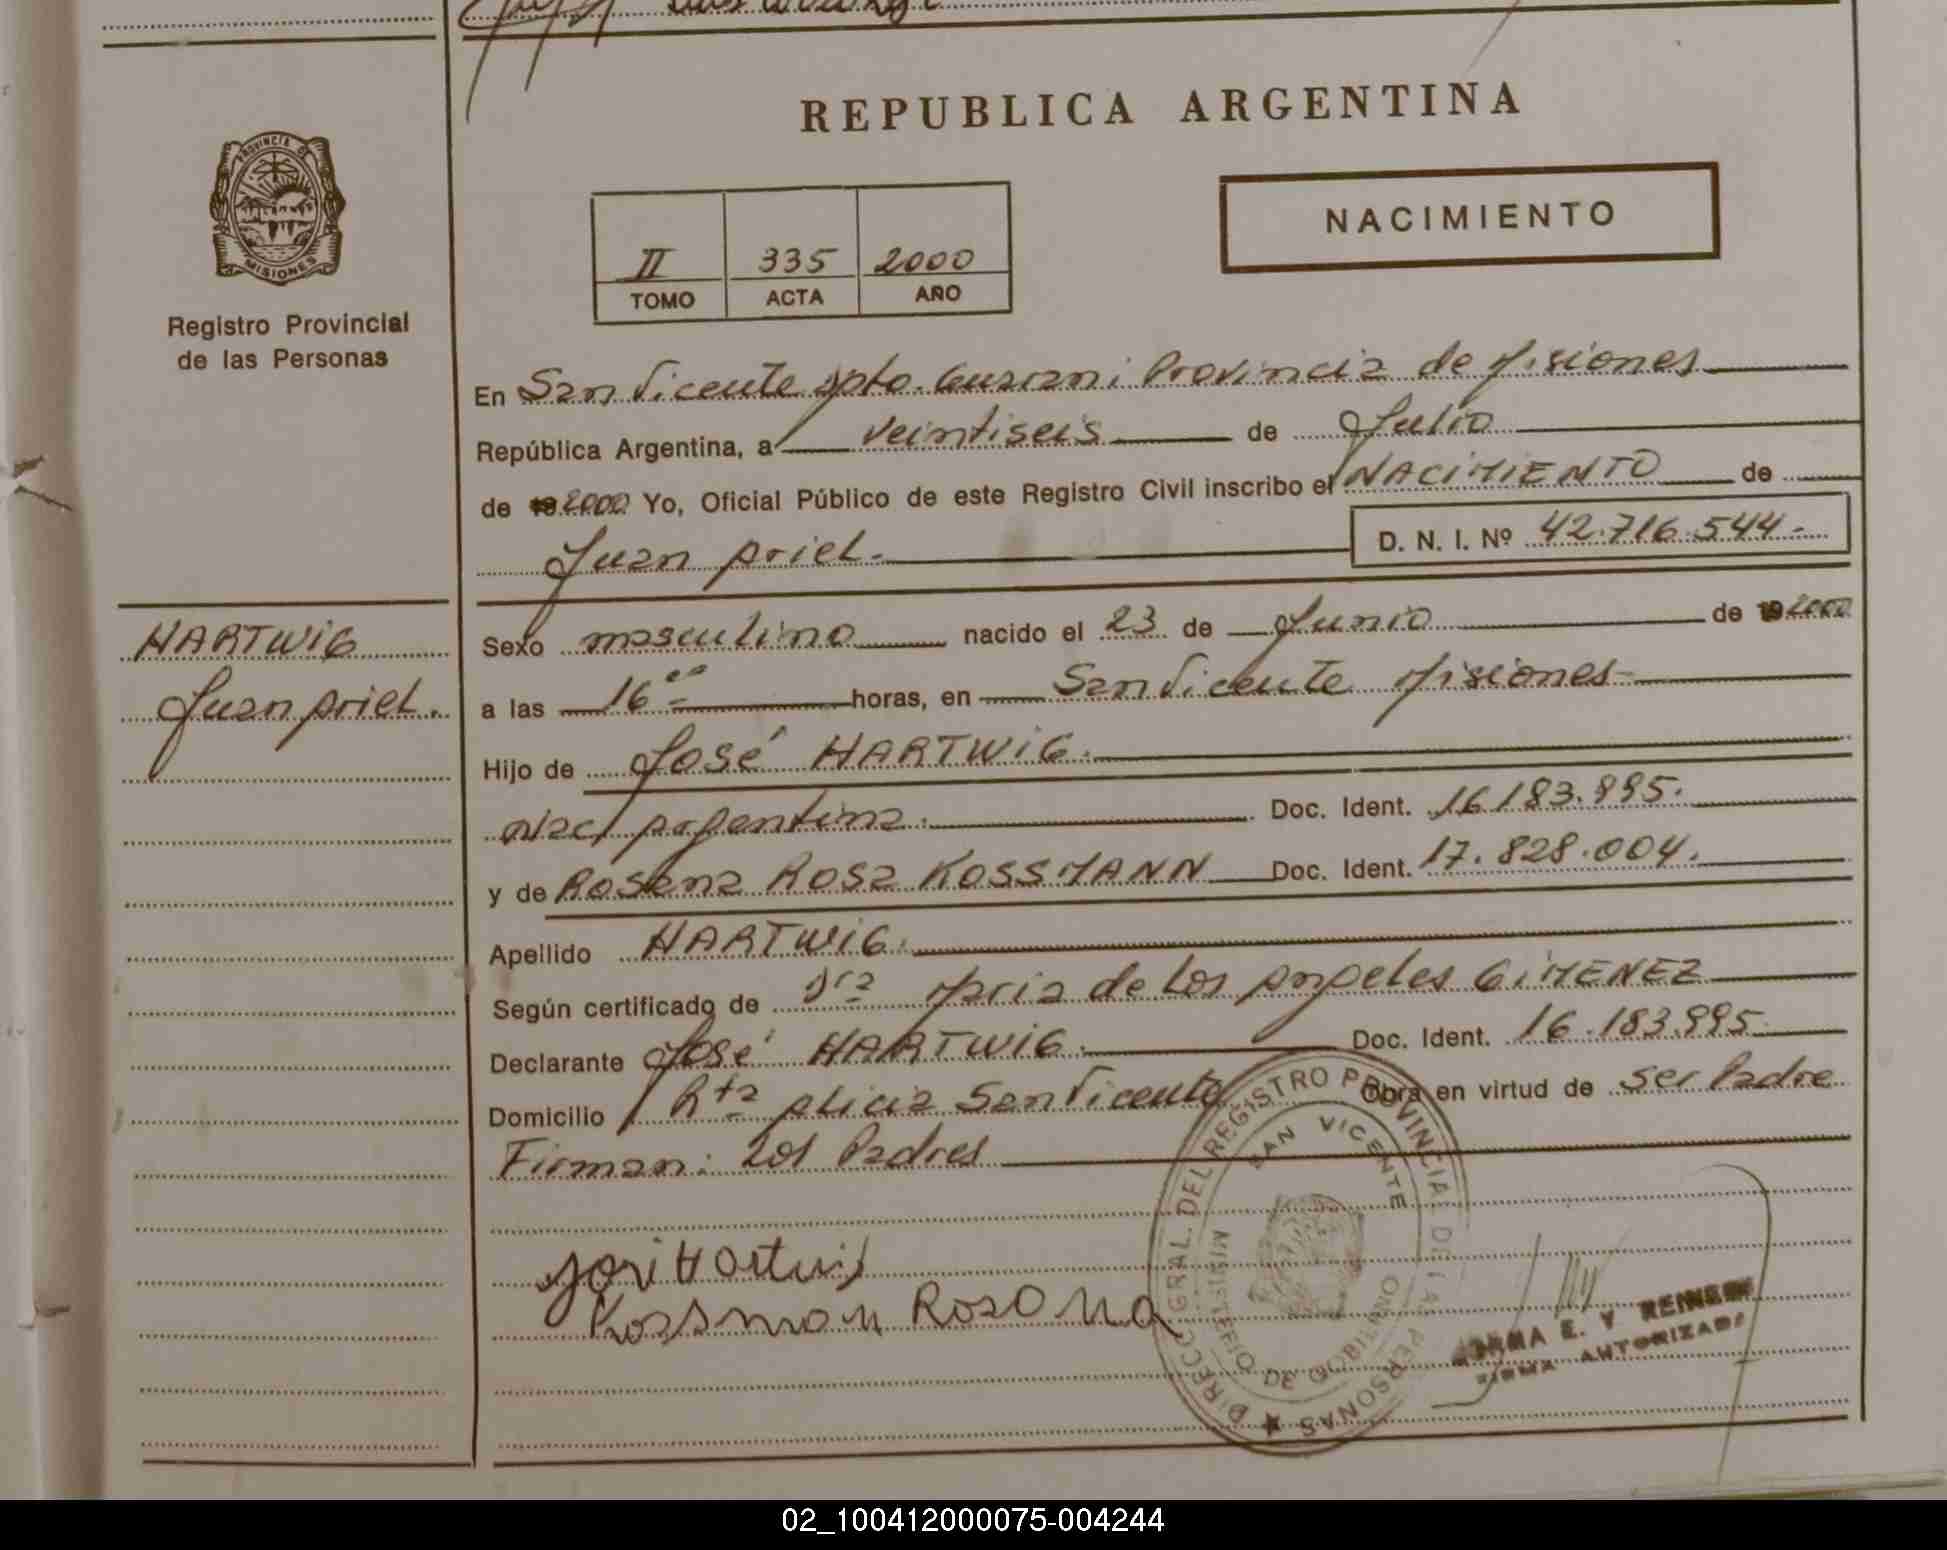 REPUBLICA ARGENTINA
PROVINCIA DE
MISIONES
Registro Provincial
de las Personas
NACIMIENTO
II 335 2000
TOMO ACTA AÑO
En San Vicente Dpto. Guarani Provincia de Misiones
República Argentina, a veintiseis de Julio
de 19 2000 Yo, Oficial Público de este Registro Civil inscribo el NACIMIENTO de
Juan Ariel.
D. N. I. Nº 42.716.544.-
HARTWIG
Juan Ariel.
Sexo masculino nacido el 23 de Junio de 19 2000
a las 16 horas, en San Vicente Misiones
Hijo de José HARTWIG.
Nac/ Argentina. Doc. Ident. 16.183.995.
y de Rosana Rosa KOSSMANN Doc. Ident. 17.828.004.
Apellido HARTWIG.
Según certificado de Dra Maria de Los Angeles GIMENEZ
Declarante José HARTWIG. Doc. Ident. 16.183.995
Domicilio Rta Alicia San Vicente Obra en virtud de ser Padre
Firman: Los Padres
José Hartwig
Kossman Rosana
DIRECC. GRAL. DEL REGISTRO PROVINCIAL DE LAS PERSONAS
SAN VICENTE
MINISTERIO DE GOBIERNO
NORMA E. V
FIRMA AUTORIZADA
02_100412000075-004244